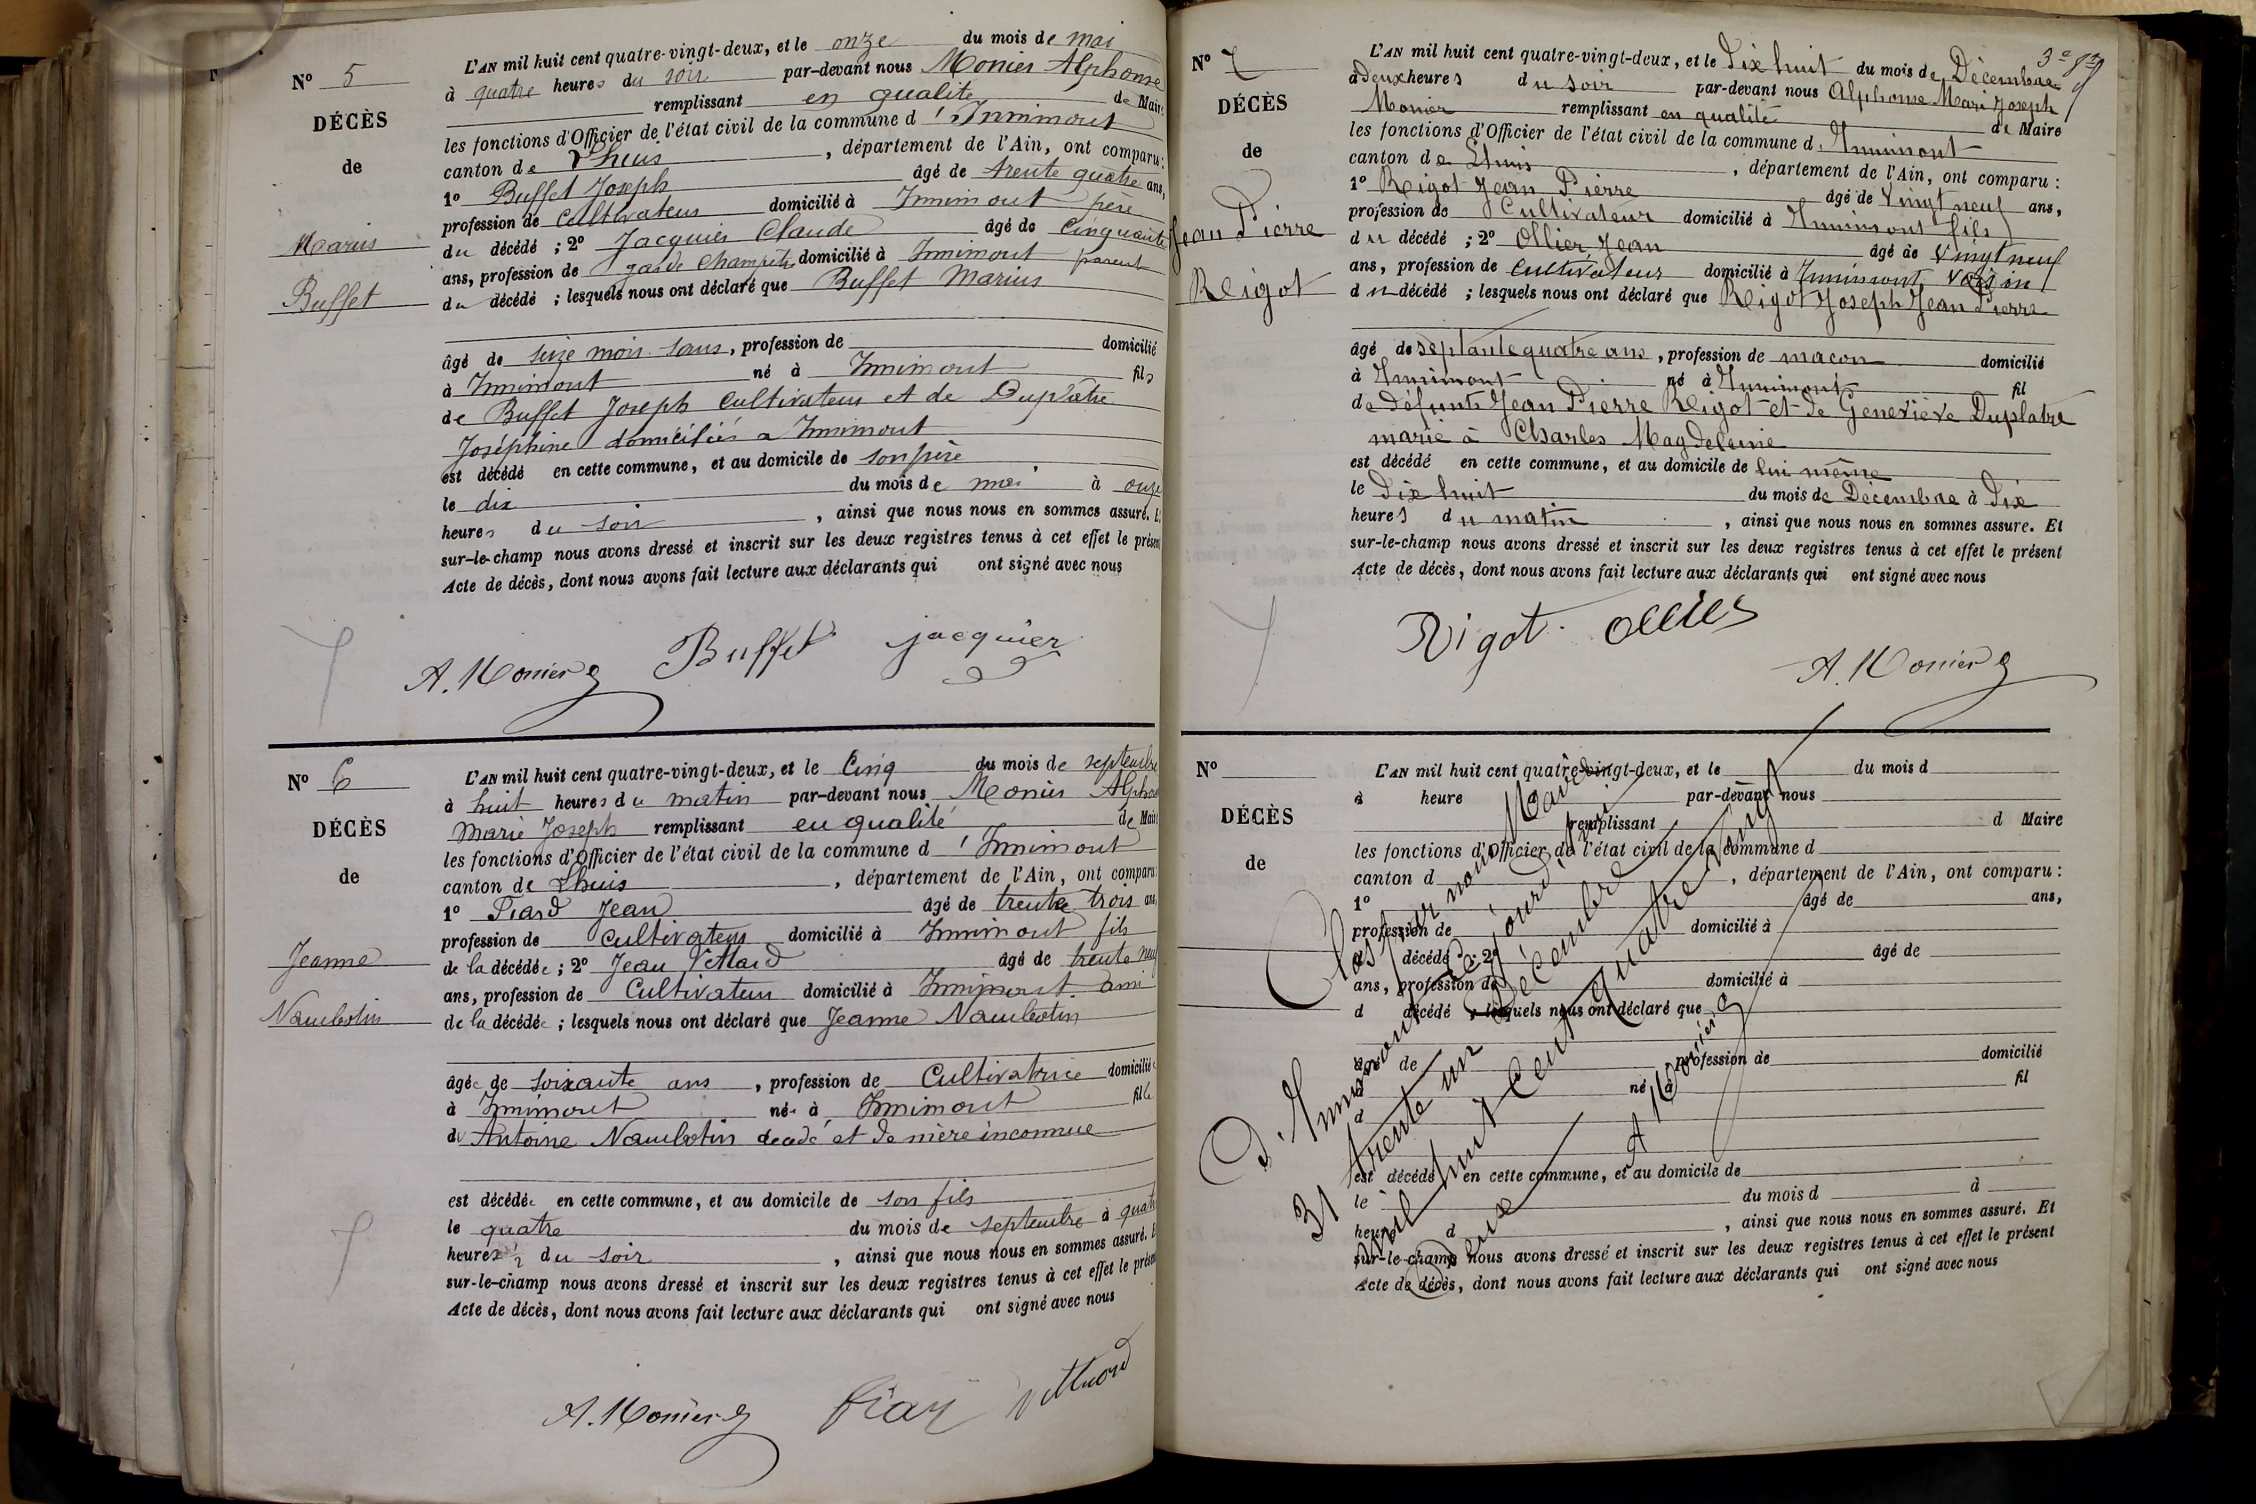 N° 5
DÉCÈS
de
Marius
Buffet
L'AN mil huit cent quatre-vingt-deux, et le onze du mois de mai
à quatre heures du soir par-devant nous Monier Alphonse
remplissant en qualité de Maire
les fonctions d'Officier de l'état civil de la commune d'Innimont
canton de Lhuis, département de l'Ain, ont comparu :
1° Buffet Joseph âgé de trente quatre ans,
profession de cultivateur domicilié à Innimont père
du décédé ; 2° Jacquier Claude âgé de cinquante
ans, profession de garde champêtre domicilié à Innimont parent
du décédé ; lesquels nous ont déclaré que Buffet Marius
âgé de seize mois sans, profession de domicilié
à Innimont né à Innimont fils
de Buffet Joseph Cultivateur et de Duplâtre
Joséphine domiciliés a Innimont
est décédé en cette commune, et au domicile de son père
le dix du mois de mai à onze
heures du soir, ainsi que nous nous en sommes assuré. Et
sur-le-champ nous avons dressé et inscrit sur les deux registres tenus à cet effet le présent
Acte de décès, dont nous avons fait lecture aux déclarants qui ont signé avec nous
A. Monier Buffet jacquier
N° 6
DÉCÈS
de
Jeanne
Nambotin
L'AN mil huit cent quatre-vingt-deux, et le Cinq du mois de septembre
à huit heures du matin par-devant nous Monier Alphonse
Marie Joseph remplissant en qualité de Maire
les fonctions d'Officier de l'état civil de la commune d'Innimont
canton de Lhuis, département de l'Ain, ont comparu :
1° Piard Jean âgé de trente trois ans
profession de Cultivateur domicilié à Innimont fils
de la décédée ; 2° Jean Vettard âgé de trente neuf
ans, profession de Cultivateur domicilié à Innimont ami
de la décédée ; lesquels nous ont déclaré que Jeanne Nambotin
âgée de soixante ans, profession de Cultivatrice domiciliée
à Innimont née à Innimont fille
de Antoine Nambotin décédé et de mère inconnue
est décédée en cette commune, et au domicile de son fils
le quatre du mois de septembre à quatre
heures 1/2 du soir, ainsi que nous nous en sommes assuré. Et
sur-le-champ nous avons dressé et inscrit sur les deux registres tenus à cet effet le présent
Acte de décès, dont nous avons fait lecture aux déclarants qui ont signé avec nous
A. Monier Piard Vettard
N° 7
DÉCÈS
de
Jean Pierre
Rigot
L'AN mil huit cent quatre-vingt-deux, et le Dix huit du mois de Décembre
à deux heures du soir par-devant nous Alphonse Marie Joseph
Monier remplissant en qualité de Maire
les fonctions d'Officier de l'état civil de la commune d'Innimont
canton de Lhuis, département de l'Ain, ont comparu :
1° Rigot Jean Pierre âgé de Vingt neuf ans,
profession de Cultivateur domicilié à Innimont fils
du décédé ; 2° Ollier Jean âgé de Vingt neuf
ans, profession de Cultivateur domicilié à Innimont Voisin
du décédé ; lesquels nous ont déclaré que Rigot Joseph Jean Pierre
âgé de septante quatre ans, profession de macon domicilié
à Innimont né à Innimont fil
de défunts Jean Pierre Rigot et de Geneviève Duplatre
marié à Charles Magdeleine
est décédé en cette commune, et au domicile de lui même
le Dix huit du mois de Décembre à Dix
heures du matin, ainsi que nous nous en sommes assuré. Et
sur-le-champ nous avons dressé et inscrit sur les deux registres tenus à cet effet le présent
Acte de décès, dont nous avons fait lecture aux déclarants qui ont signé avec nous
Rigot Ollier
A. Monier
N°
DÉCÈS
de
L'AN mil huit cent quatre-vingt-deux, et le du mois d
à heure par-devant nous
remplissant d Maire
les fonctions d'Officier de l'état civil de la commune d
canton d, département de l'Ain, ont comparu :
1° âgé de ans,
profession de domicilié à
d décédé ; 2° âgé de
ans, profession de domicilié à
d décédé ; lesquels nous ont déclaré que
âgé de profession de domicilié
à né à fil
d
est décédé en cette commune, et au domicile de
le du mois d à
heure d, ainsi que nous nous en sommes assuré. Et
sur-le-champ nous avons dressé et inscrit sur les deux registres tenus à cet effet le présent
Acte de décès, dont nous avons fait lecture aux déclarants qui ont signé avec nous
Clos par nous Maire
D'Innimont ce jourd'hui
31 trente un Décembre
mil huit Cent quatre vingt
Deux
A Monier